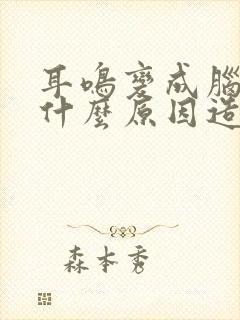 耳鳴變成腦
什麼原因造
森本秀